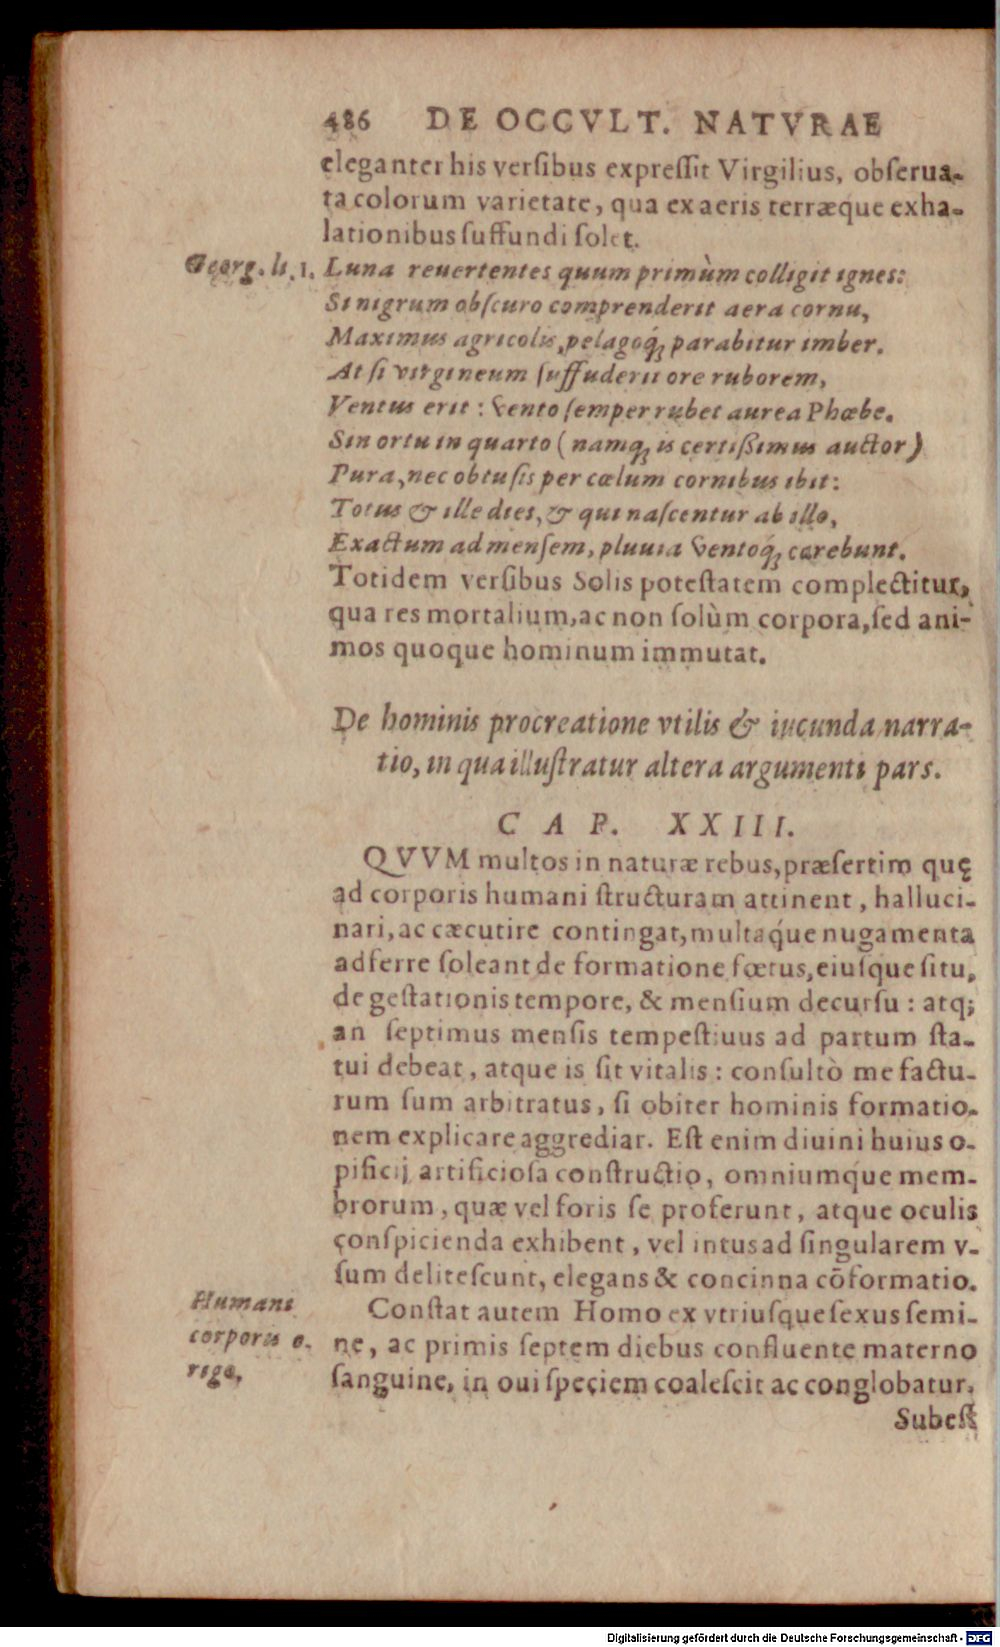 486 DE OCCVLT. NATVRAE
eleganter his verſibus expreſſit Virgilius, obſerua-
ta colorum varietate, qua ex aeris terræque exha-
lationibus ſuffundi ſolet.
Georg. li. 1. Luna reuertentes quum primùm colligit ignes:
Si nigrum obſcuro comprenderit aera cornu,
Maximus agricolis, pelagoq́; parabitur imber.
At ſi virgineum ſuffuderit ore ruborem,
Ventus erit: vento ſemper rubet aurea Phœbe.
Sin ortu in quarto (namq; is certißimus auctor)
Pura, nec obtuſis per cœlum cornibus ibit:
Totus & ille dies, & qui naſcentur ab illo,
Exactum ad menſem, pluuia ventoq́; carebunt.
Totidem verſibus Solis poteſtatem complectitur,
qua res mortalium, ac non ſolùm corpora, ſed ani-
mos quoque hominum immutat.
De hominis procreatione vtilis & iucunda narra-
tio, in qua illuſtratur altera argumenti pars.
CAP. XXIII.
QVVM multos in naturæ rebus, præſertim quę
ad corporis humani ſtructuram attinent, halluci-
nari, ac cæcutire contingat, multaq́ue nugamenta
adferre ſoleant de formatione fœtus, eiuſque ſitu,
de geſtationis tempore, & menſium decurſu: atq;
an ſeptimus menſis tempeſtiuus ad partum ſta-
tui debeat, atque is ſit vitalis: conſultò me factu-
rum ſum arbitratus, ſi obiter hominis formatio-
nem explicare aggrediar. Eſt enim diuini huius o-
pificij artificioſa conſtructio, omniumq́ue mem-
brorum, quæ vel foris ſe proferunt, atque oculis
conſpicienda exhibent, vel intus ad ſingularem v-
ſum deliteſcunt, elegans & concinna cōformatio.
Humani
corporis o-
rigo.
Conſtat autem Homo ex vtriuſque ſexus ſemi-
ne, ac primis ſeptem diebus confluente materno
ſanguine, in oui ſpeciem coaleſcit ac conglobatur.
Subeſt
Digitalisierung gefördert durch die Deutsche Forschungsgemeinschaft - DFG